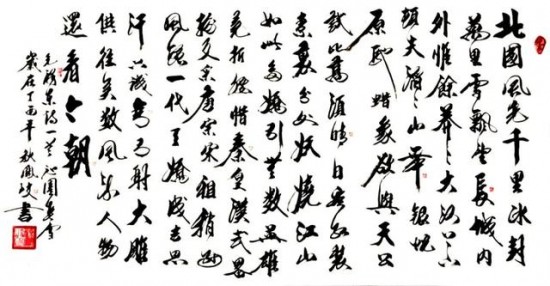 北國風光千里冰封
萬里雪飄望長城內
外惟餘莽々大河上下
頓失滔々山舞銀蛇
原馳蠟象欲與天公
試比高須晴日看紅裝
素裹分外妖嬈江山
如此多嬌引無數英雄
競折腰惜秦皇漢武略
輸文采唐宗宋祖稍遜
風騷一代天驕成吉思
汗只識彎弓射大雕
俱往矣數風流人物
還看今朝
毛澤東詩一首沁園春雪
歲在丁酉年秋書